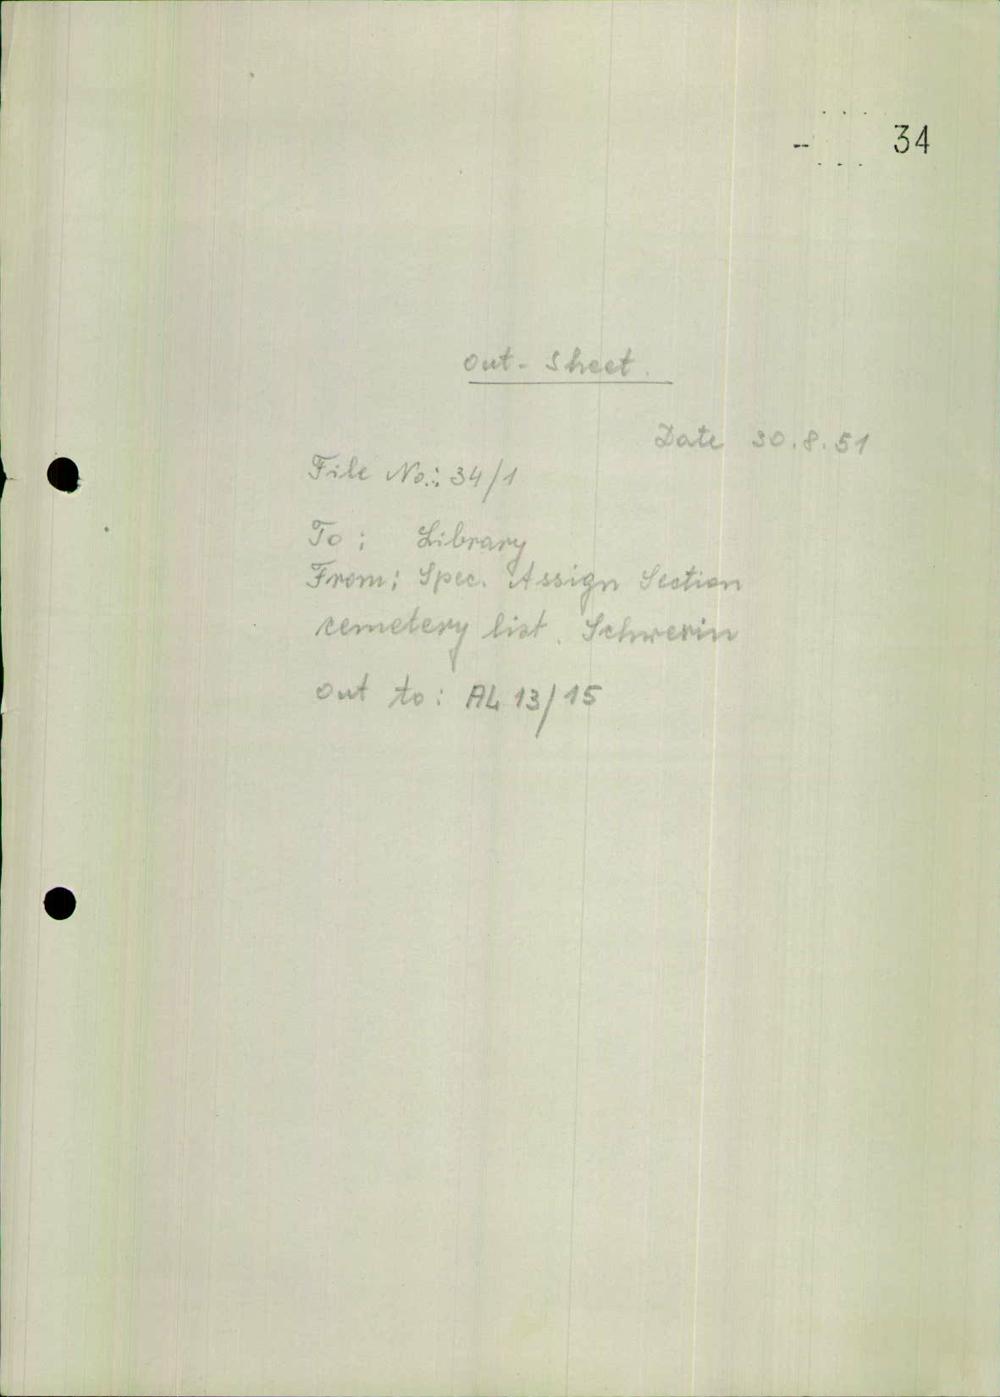 -- 34
Out - Sheet.
Date 30.8.51
File No.: 34/1
To : Library
From: Spec. Assign Section
cemetery list. Schwerin
Out to: AL 13/15